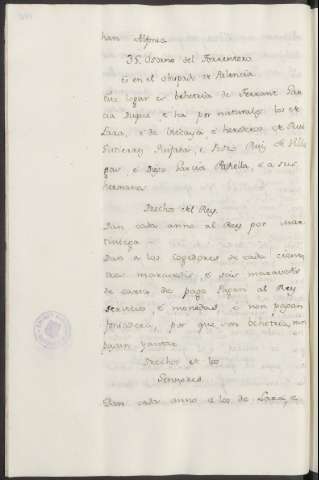 han Alfonso
35. Osorno del Forrentero
Es en el obispado de Palencia
Este logar es behetria de Ferrant Gar
cia Duque, e ha por naturales los de
Lara, e de Vizcaya e herederos de Rui
Gutierrez, e Pedro Ruiz de Villa
gar, e Diego Garcia Padiella, e a sus
hermana
Derechos del Rey.
Dan cada anno al Rey por mar
tiniega
Dan a los Cogedores de cada cient
dos maravedis e seis maravedis
de carta de pago Pagan al Rey
servicios e monedas, e non pagan
fonsadera, por que son behetria, nin
pagan yantar.
Derechos de los
Sennores
Dan cada anno a los de Lara, e